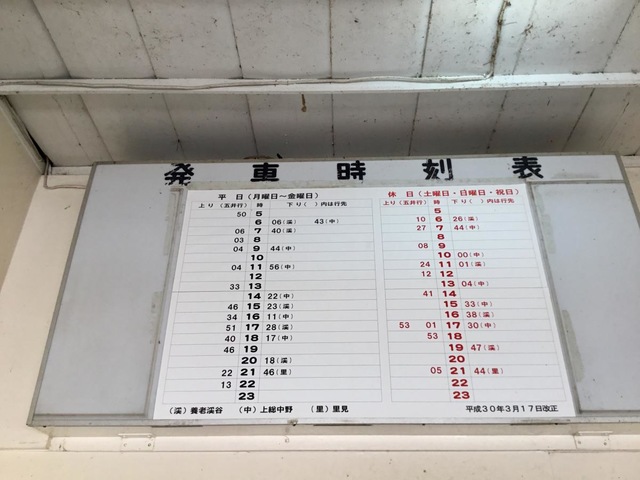 発車時刻表
平日（月曜日～金曜日）
上り（五井行） 時 下り（ ）内は行先
50 5
6 06（渓） 43（中）
06 7 40（渓）
03 8
04 9 44（中）
10
04 11 56（中）
12
33 13
14 22（中）
46 15 23（渓）
34 16 11（中）
51 17 28（渓）
40 18 17（中）
46 19
20 18（渓）
22 21 46（里）
13 22
23
休日（土曜日・日曜日・祝日）
上り（五井行） 時 下り（ ）内は行先
5
10 6 26（渓）
27 7 44（中）
8
08 9
10 00（中）
24 11 01（渓）
12 12
13 04（中）
41 14
15 33（中）
16 38（渓）
53 01 17 30（中）
53 18
19 47（渓）
20
05 21 44（里）
22
23
（渓）養老渓谷 （中）上総中野 （里）里見
平成30年3月17日改正